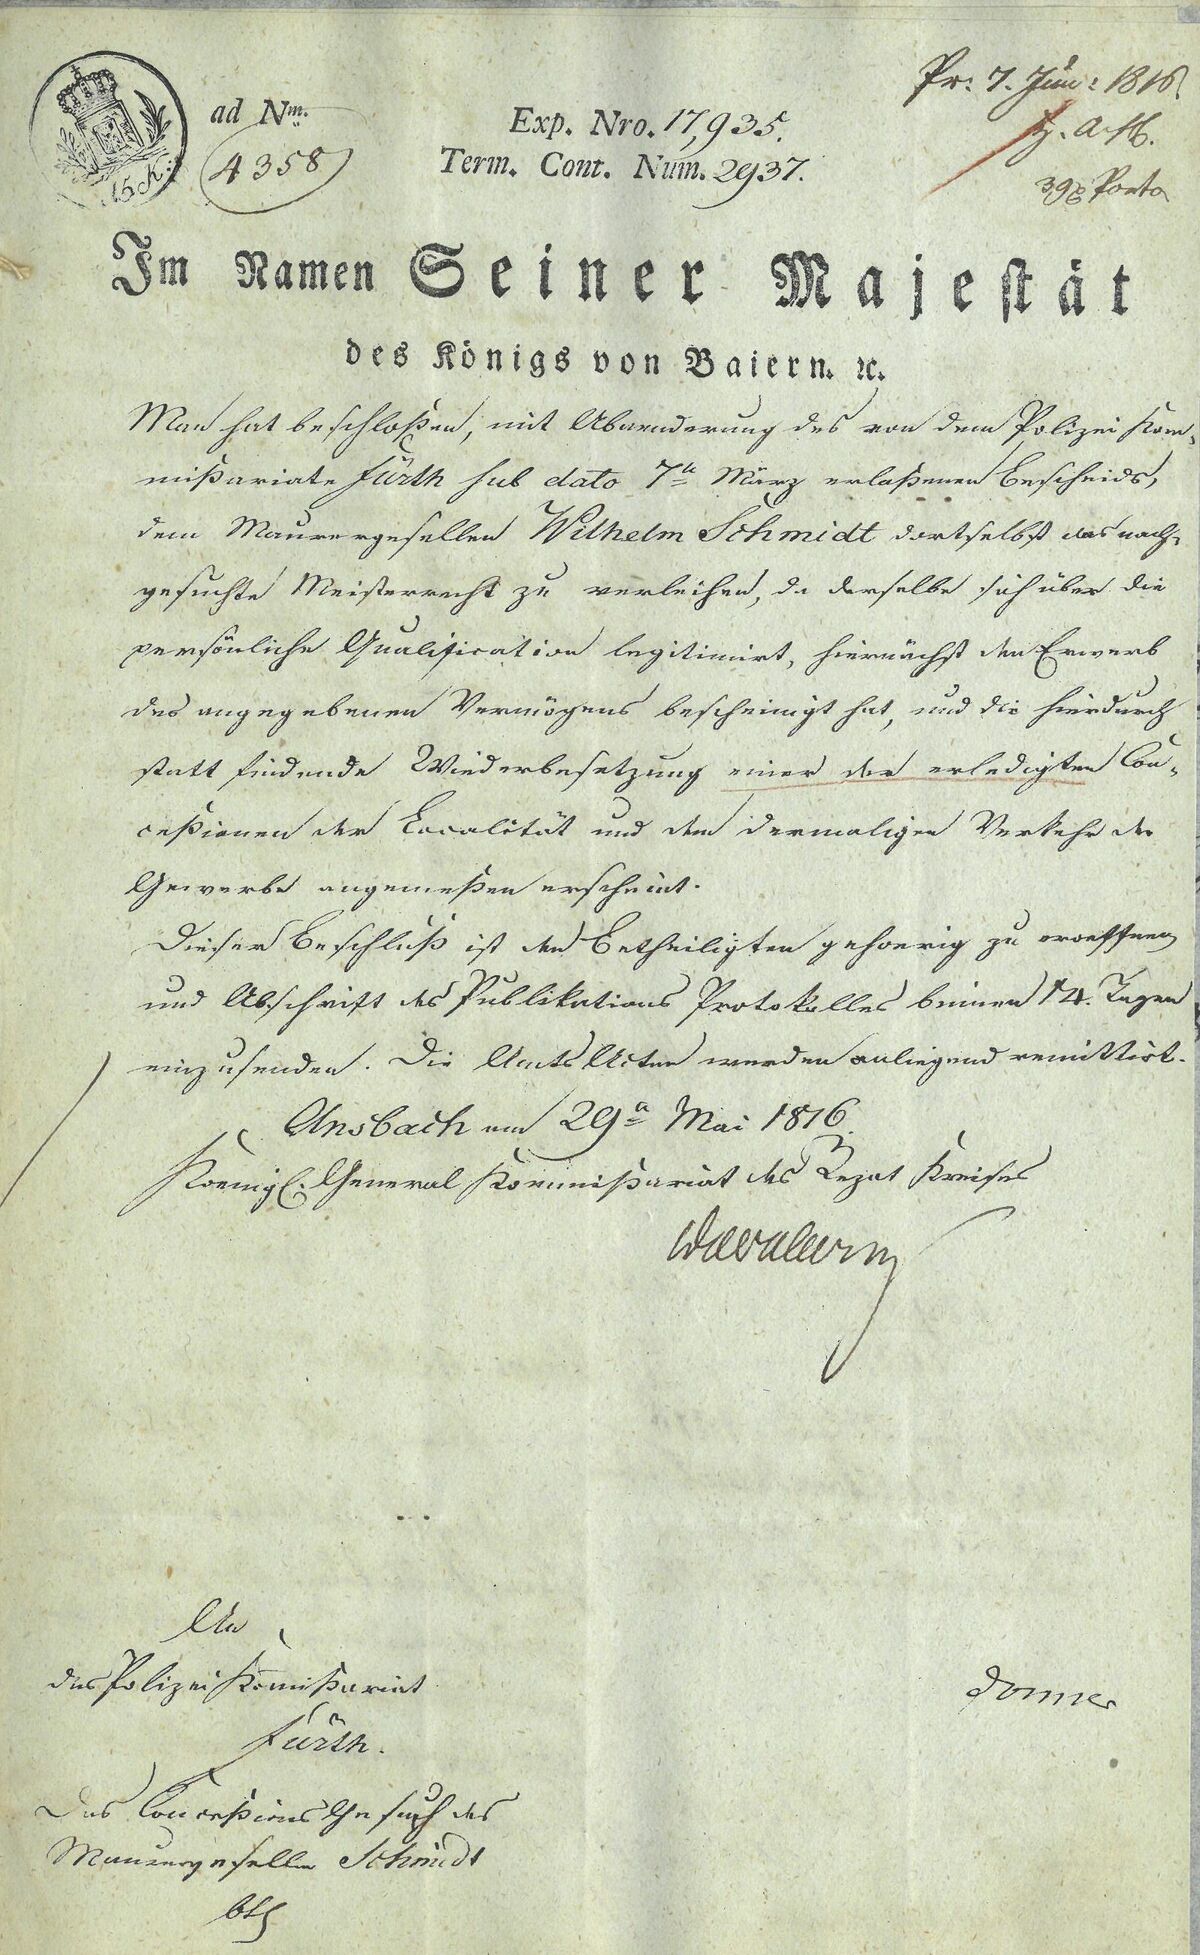 15 K.
ad Nm.
4358
Exp. Nro. 17,935.
Term. Cont. Num. 2937.
Pr: 7. Jun: 1816.
39 x Porto
Im Namen Seiner Majestät
des Königs von Baiern. ꝛc.
Man hat beschloßen, mit Abaenderung des von dem Polizei Kom-
mißariate Fürth sub dato 7n März erlaßenen Bescheids,
dem Maurergesellen Wilhelm Schmidt dortselbst das nach-
gesuchte Meisterrecht zu verleihen, da derselbe sich über die
persönliche Qualification legitimirt, hiernächst den Erwerb
des angegebenen Vermögens bescheinigt hat, und die hierdurch
statt findende Wiederbesetzung einer der erledigten Con-
ceßionen der Localität und dem dermaligen Verkehr der
Gewerbe angemeßen erscheint.
Dieser Beschluß ist den Betheiligten gehoerig zu eroeffnen
und Abschrift des Publikations Protokolles binnen 14. Tagen
einzusenden. Die Amts Acten werden anliegend remittirt.
Ansbach am 29n Mai 1816.
Koenigl. General Kommißariat des Rezat Kreises
An
das Polizei Komißariat
Fürth.
Das Conceßions Gesuch des
Maurergesellen Schmidt
btf
Donner